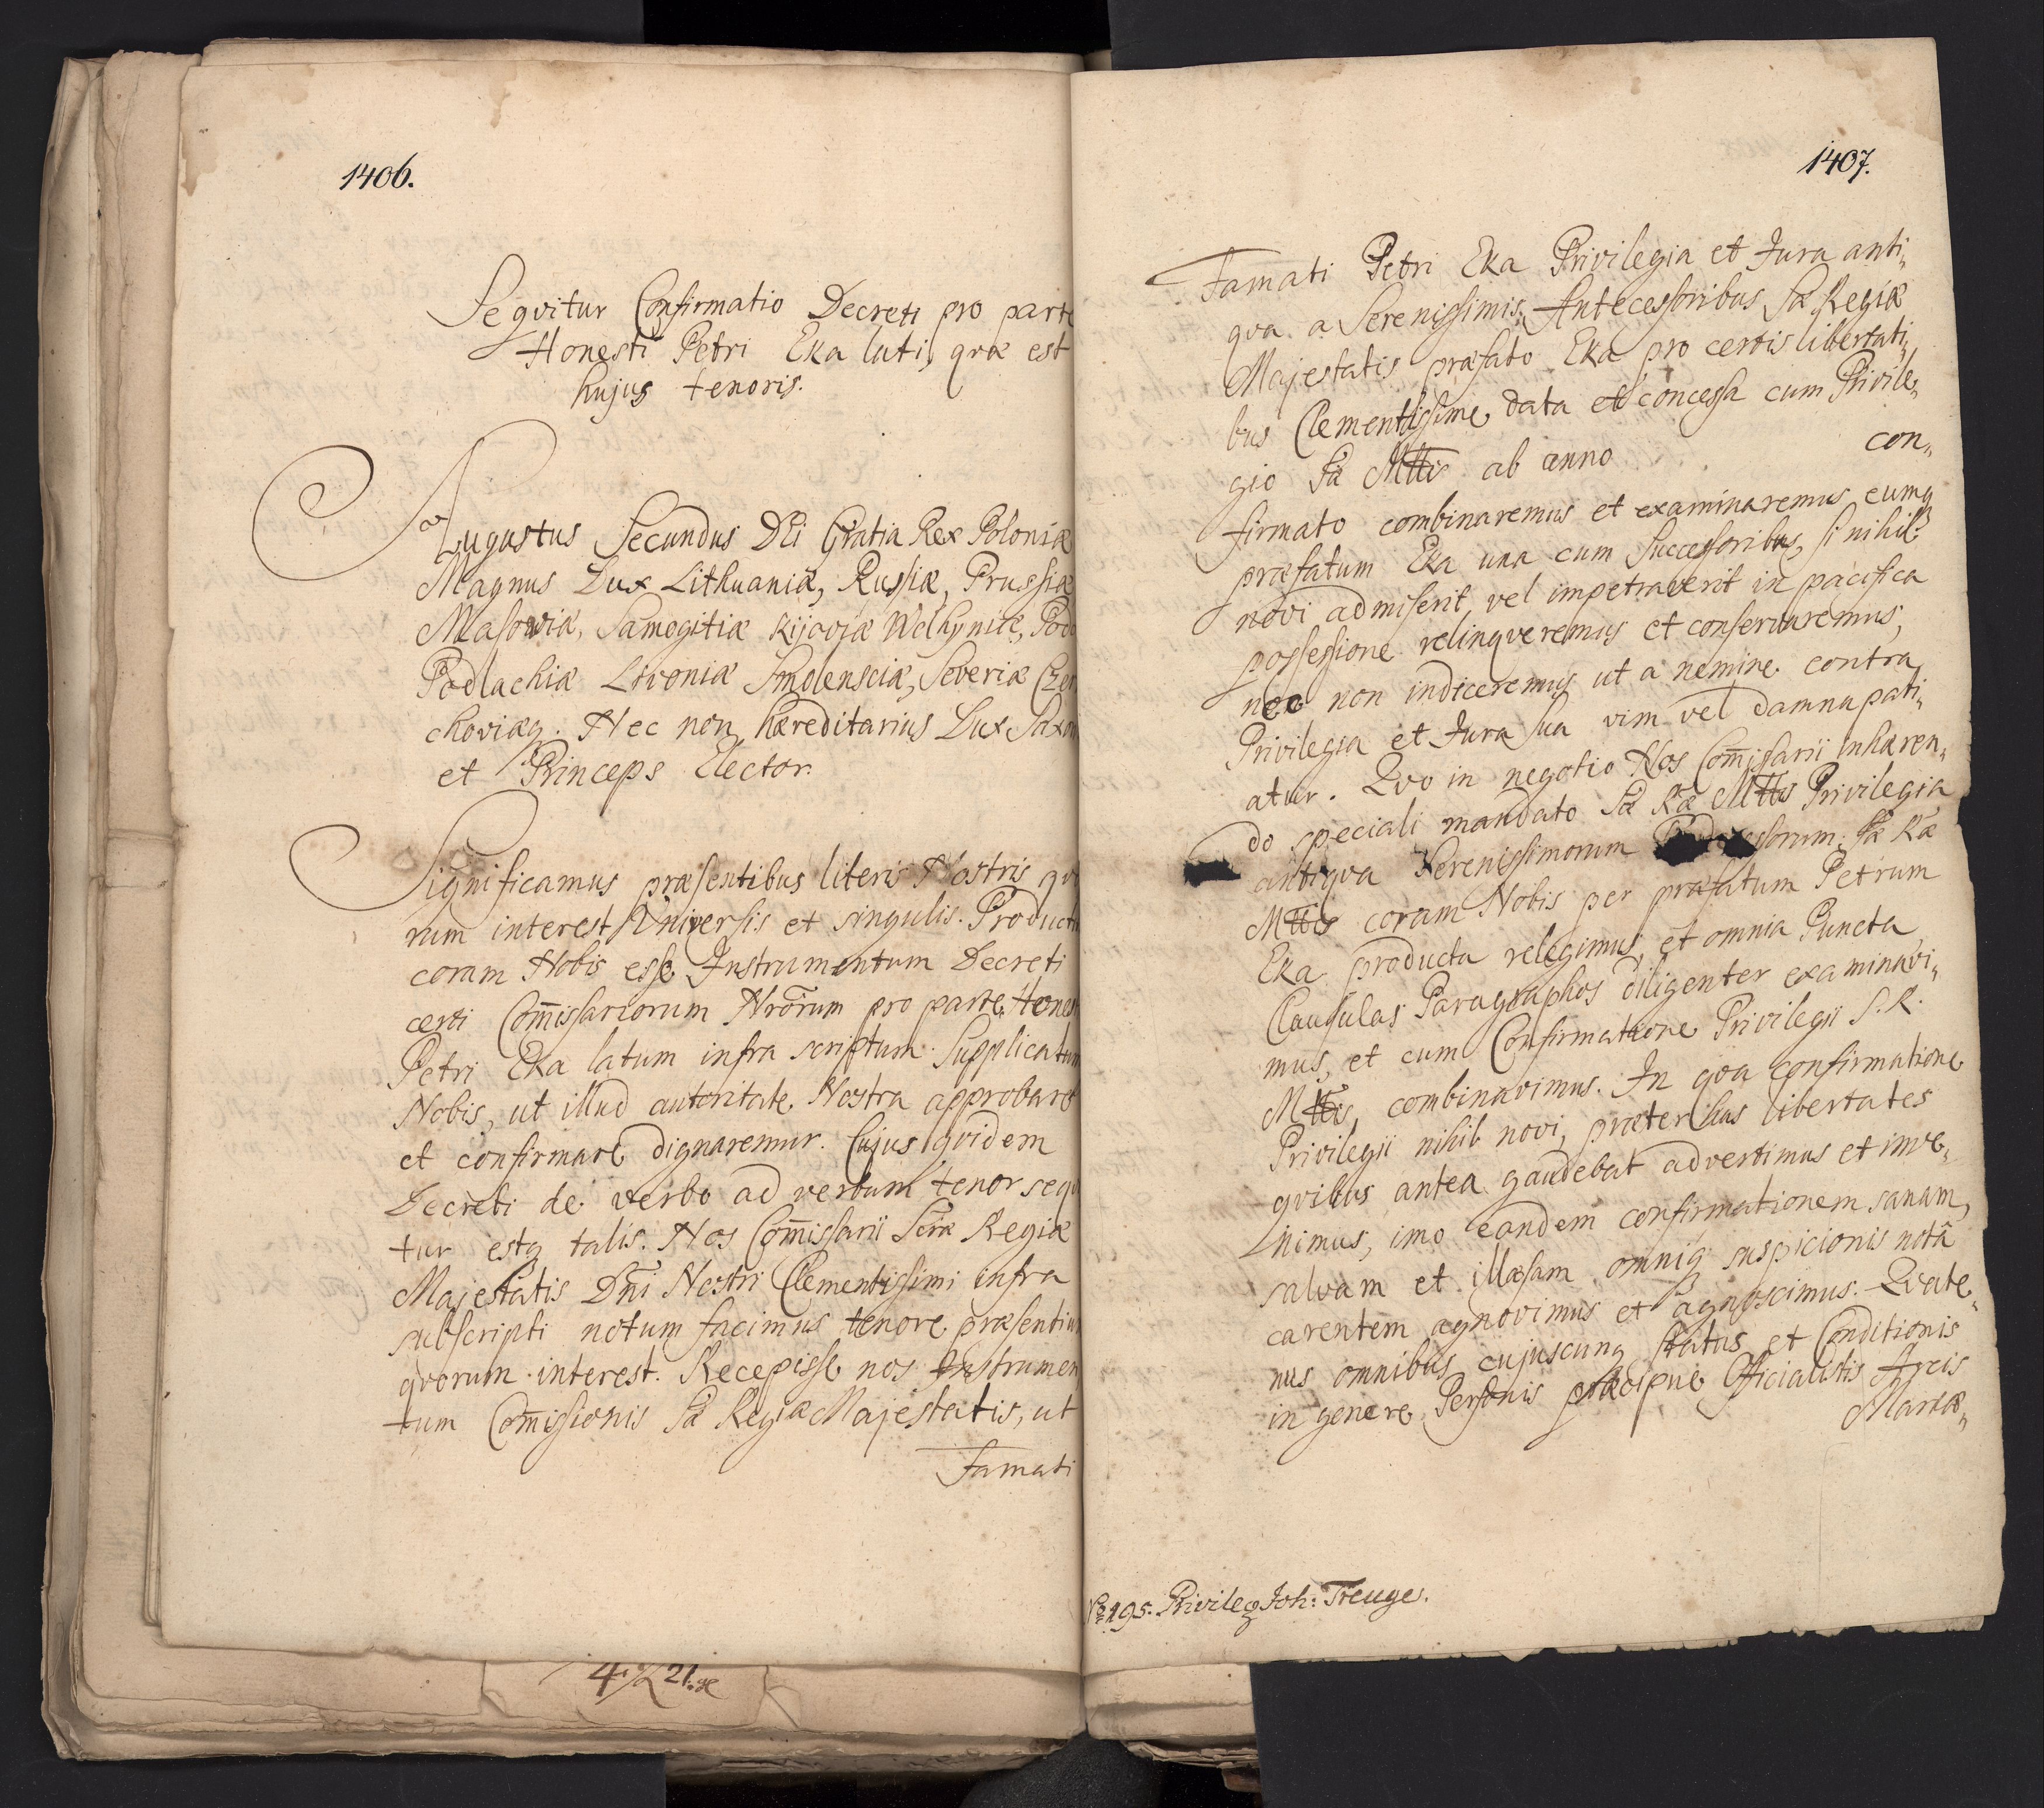 1406.
Seqvitur Confirmatio Decreti pro parte
Honesti Petri Eka lati, qvæ est
hujus tenoris.
Augustus Secundus DEi Gratia Rex Poloniæ
Magnus Dux Lithuaniæ, Russiæ, Prussiæ
Masowiæ, Samogitiæ Kijoviæ Wolhyniæ, Podo
Podlachiæ Livoniæ Smolensciæ, Severiæ Czer
choviæq. Nec non hæreditarius Dux Saxon
et Princeps Elector.
Significamus præsentibus literis Nostris qvo
rum interest Universis et singulis. Productu
coram Nobis esse Instrumentum Decreti
certi Com̄issariorum Nrōrum pro parte Hones
Petri Eka latum infra scriptum. Supplicatum
Nobis, ut illud autoritate Nostra approbare
et confirmare dignaremur. Cujus qvidem
Decreti de verbo ad verbum tenor seqvi
tur estq talis. Nos Com̄issarii Scræ Regiæ
Majestatis Dn̄i Nostri Clementissimi infra
subscripti notum facimus tenore præsentium
qvorum interest. Recepisse nos Instrumen
tum Com̄issionis Sæ Regiæ Majestatis, ut
Famati
1407.
Famati Petri Eka Privilegia et Jura anti„
qva a Serenissimis Antecessoribus Sæ Regiæ
Majestatis præfato Eka pro certis libertati„
bus Clementissime data et concessa cum Privile„
gio Sæ Mttis ab anno con„
firmato combinaremus et examinaremus eumq
præfatum Eka una cum Successoribus, si nihil
novi admiserit, vel impetraverit in pacifica
possessione relinqveremus et conservaremus,
nec non indiceremus ut a nemine contra
Privilegia et Jura sua vim vel damna pati„
atur. Qvo in negotio Nos Com̄issarii inhæren„
do speciali mandato Sæ Ræ Mttis Privilegia
antiqva Serenissimorum ssorum Sæ Ræ
Mttis coram Nobis per præfatum Petrum
Eka producta relegimus, et omnia Puncta
Clausulas Paragraphos diligenter examinavi„
mus, et cum Confirmatione Privilegii S. R.
Mttis, combinavimus. In qva confirmatione
Privilegii nihil novi, præter has libertates
qvibus antea gaudebat advertimus et inve„
nimus, imo eandem confirmationem sanam,
salvam et illæsam omniq suspicionis notâ
carentem agnovimus et agnoscimus. Qvate„
nus omnibus cujuscunq status et Conditionis
in genere Personis præcipue Officialistis Arcis
Mariæ„
No 195. Privileg Joh: Treuge.
4. 21.